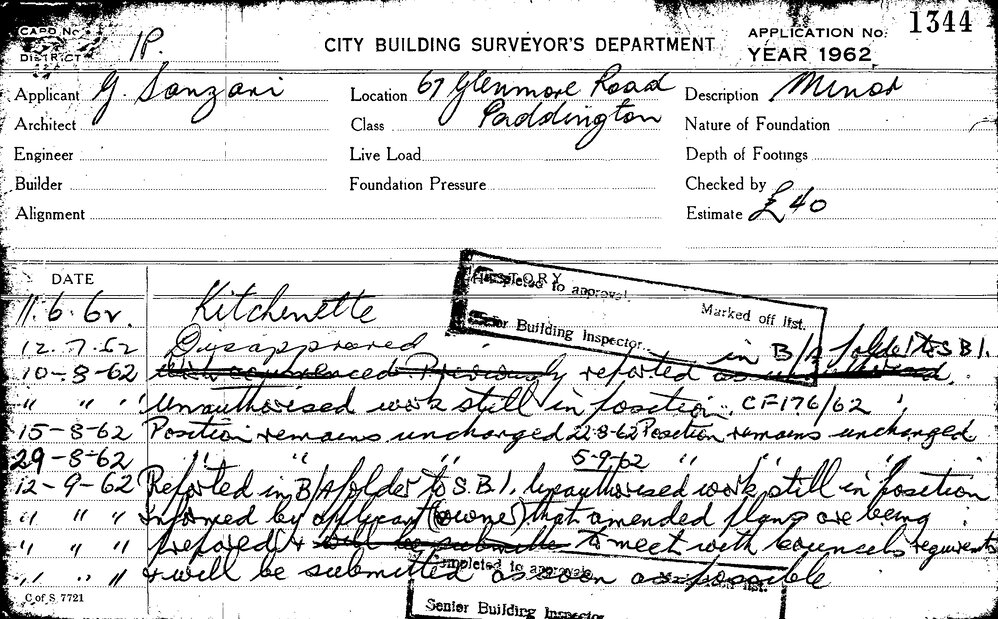 CARD No.
DISTRICT
1P.
CITY BUILDING SURVEYOR'S DEPARTMENT
APPLICATION No: 1344
YEAR 1962
Applicant G. Sanzari
Location 67 Glenmore Road
Paddington
Description Minor
Architect
Class
Nature of Foundation
Engineer
Live Load
Depth of Footings
Builder
Foundation Pressure
Checked by
Alignment
Estimate £40
DATE
HISTORY
Completed to approval.
Marked off list.
Senior Building Inspector
11.6.62. Kitchenette
12.7.62 Disapproved
in B/A folder to S.B.I.
10-8-62 Previously reported as
" " " Unauthorised work still in position. CF176/62
15-8-62 Position remains unchanged 22-8-62 Position remains unchanged
29-8-62 " " " 5-9-62 " " "
12-9-62 Reported in B/A folder to S.B.I. Unauthorised work still in position
" " " Informed by applicant (owner) that amended plans are being
" " " prepared & will be submitted to meet with Councils requirements
" " " & will be submitted as soon as possible
Completed to approval.
list.
Senior Building Inspector
C of S 7721